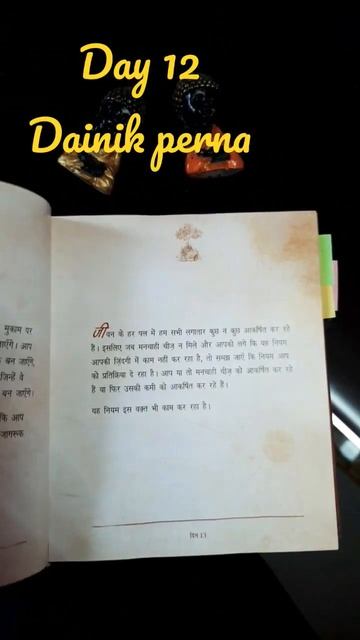 Day 12
Dainik perna
मुकाम पर
जाएँगे। आप
बन जाएँगे,
जिन्हें वे
बन जाएँगे।
कि आप
जागरूक
जीवन के हर पल में हम सभी लगातार कुछ न कुछ आकर्षित कर रहे
हैं। इसलिए जब मनचाही चीज़ न मिले और आपको लगे कि यह नियम
आपकी ज़िंदगी में काम नहीं कर रहा है, तो समझ जाएँ कि नियम आप
को प्रतिक्रिया दे रहा है। आप या तो मनचाही चीज़ को आकर्षित कर रहे
हैं या फिर उसकी कमी को आकर्षित कर रहे हैं।
यह नियम इस वक़्त भी काम कर रहा है।
दिन 13